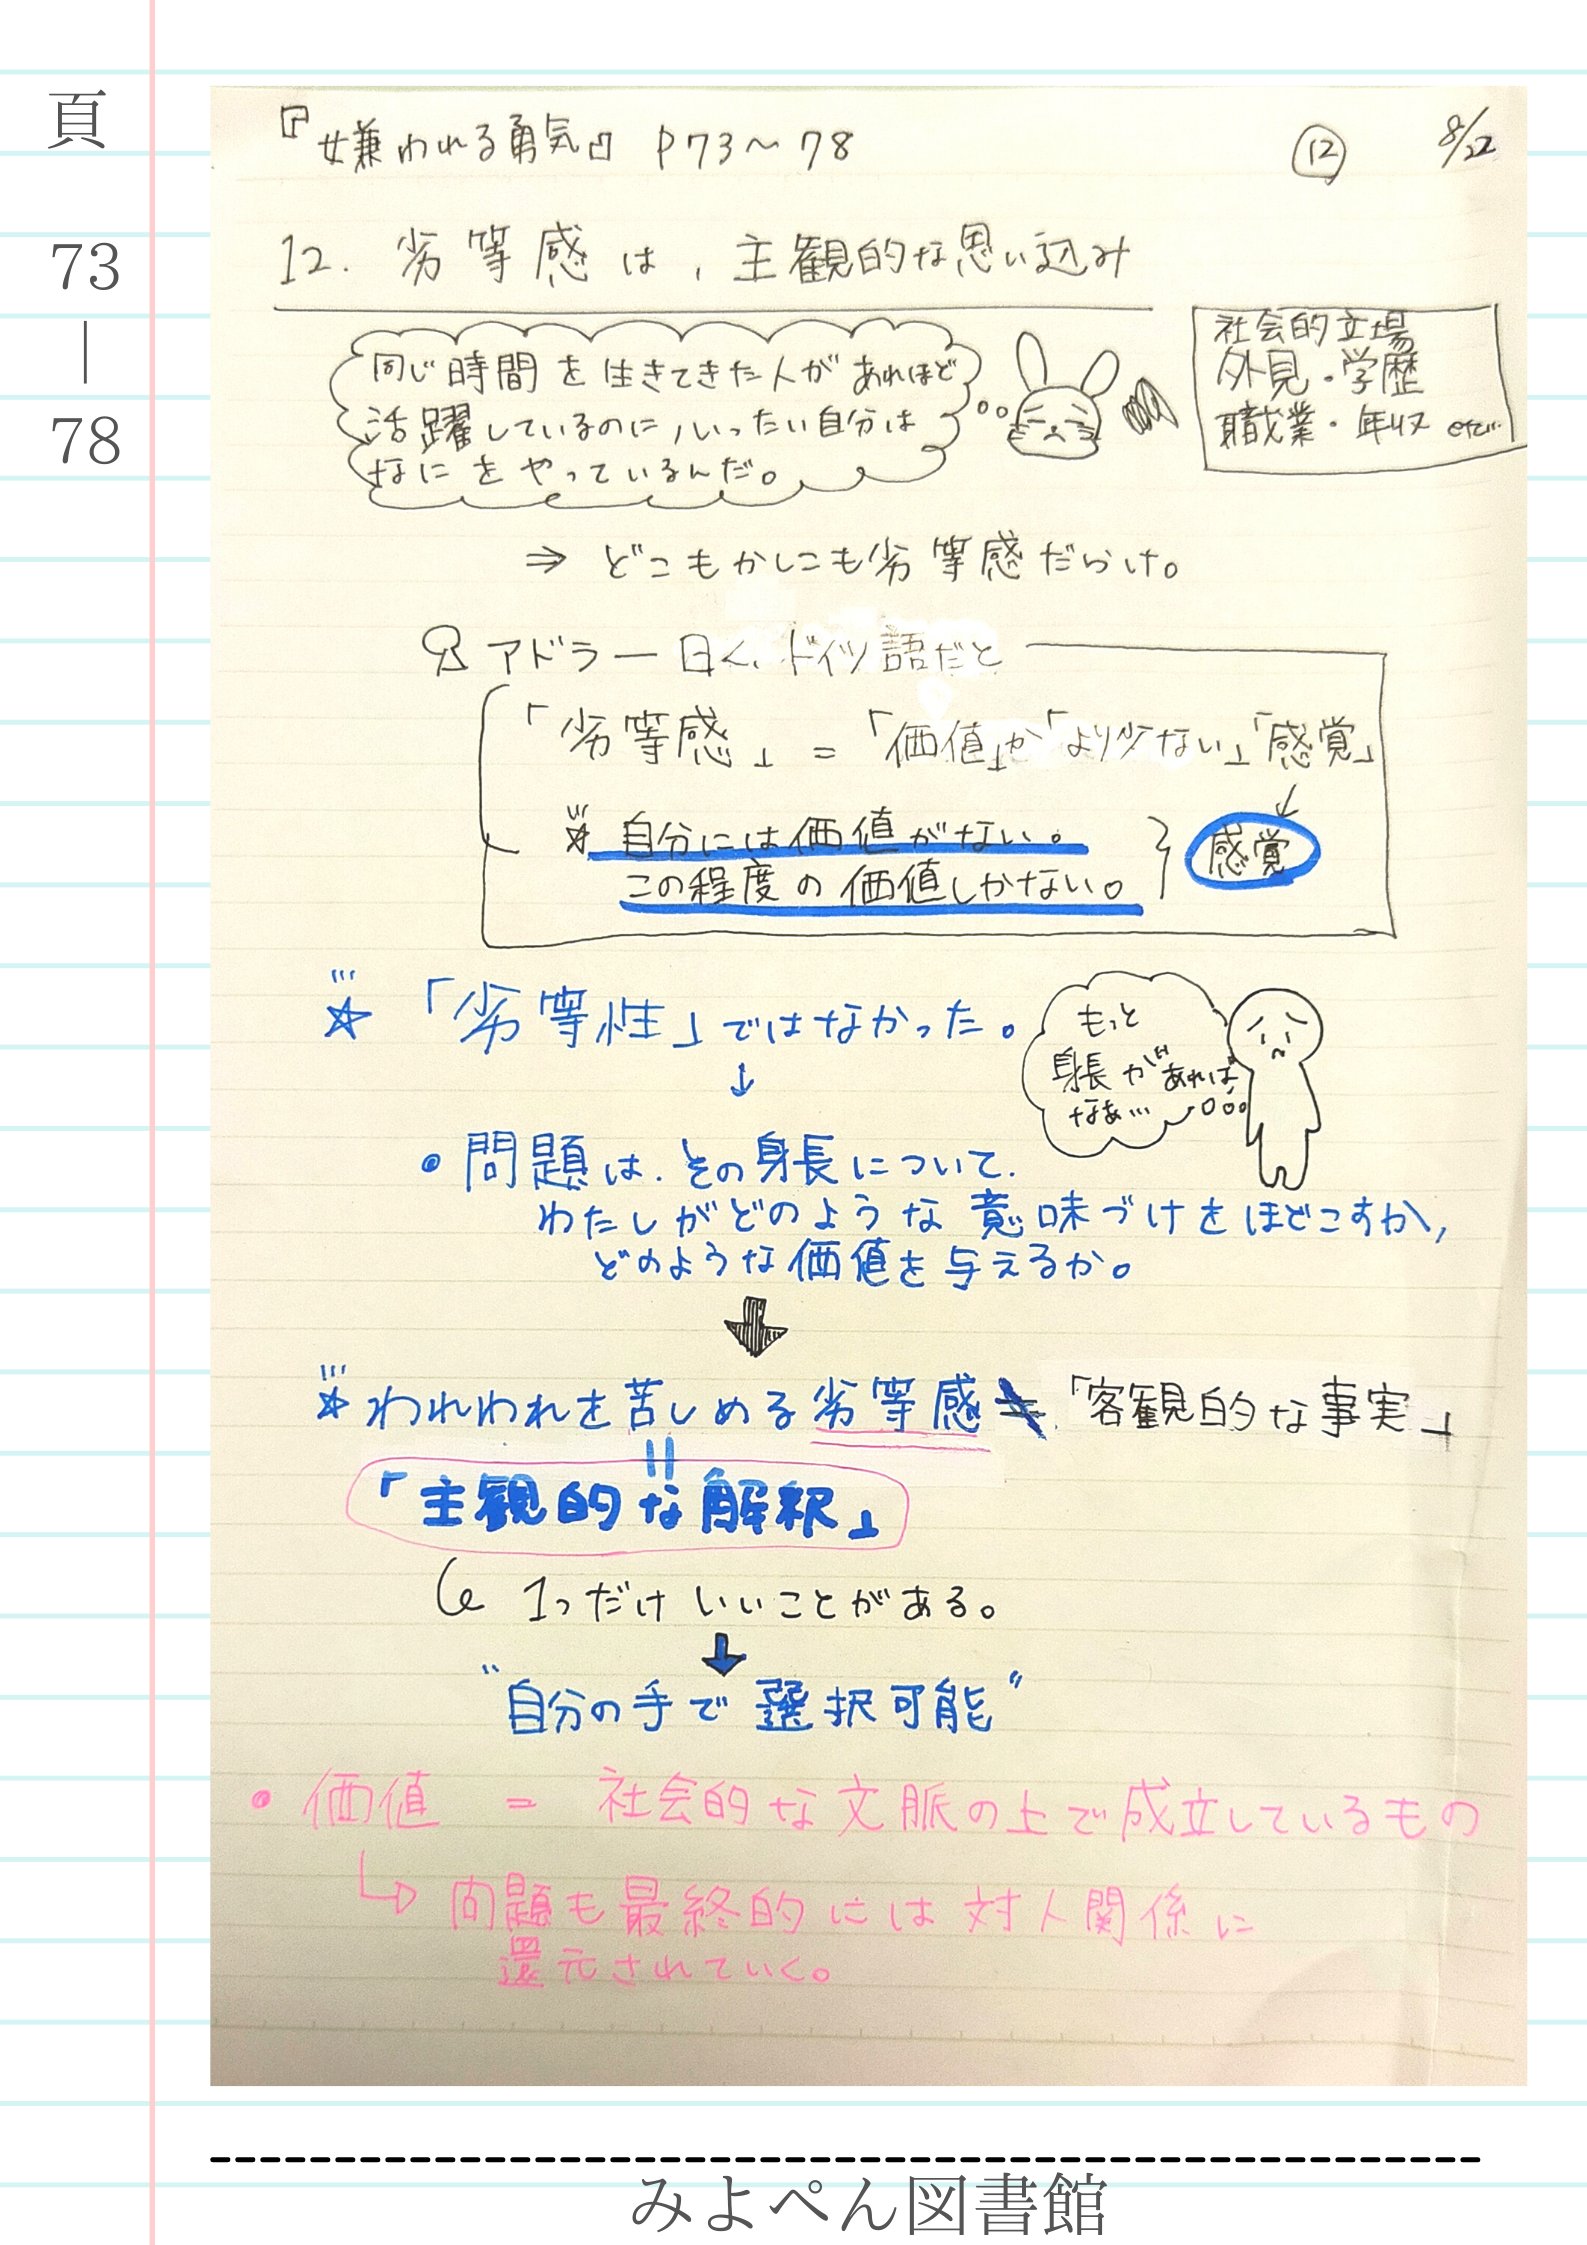 頁
73
|
78
『嫌われる勇気』 P73〜78
⑫
8/22
12. 劣等感は、主観的な思い込み
同じ時間を生きてきた人があれほど
活躍しているのに、いったい自分は
なにをやっているんだ。
社会的立場
外見・学歴
職業・年収 etc…
⇒ どこもかしこも劣等感だらけ。
アドラー曰く、ドイツ語だと
「劣等感」=「価値」が「より少ない」「感覚」
☆ 自分には価値がない。
この程度の価値しかない。
感覚
☆ 「劣等性」ではなかった。
↓
もっと
身長があれば
なぁ…
・問題は、その身長について、
わたしがどのような意味づけをほどこすか、
どのような価値を与えるか。
☆ われわれを苦しめる劣等感≠「客観的な事実」
||
「主観的な解釈」
1つだけいいことがある。
↓
"自分の手で選択可能"
・価値 = 社会的な文脈の上で成立しているもの
↳ 問題も最終的には対人関係に
還元されていく。
みよぺん図書館